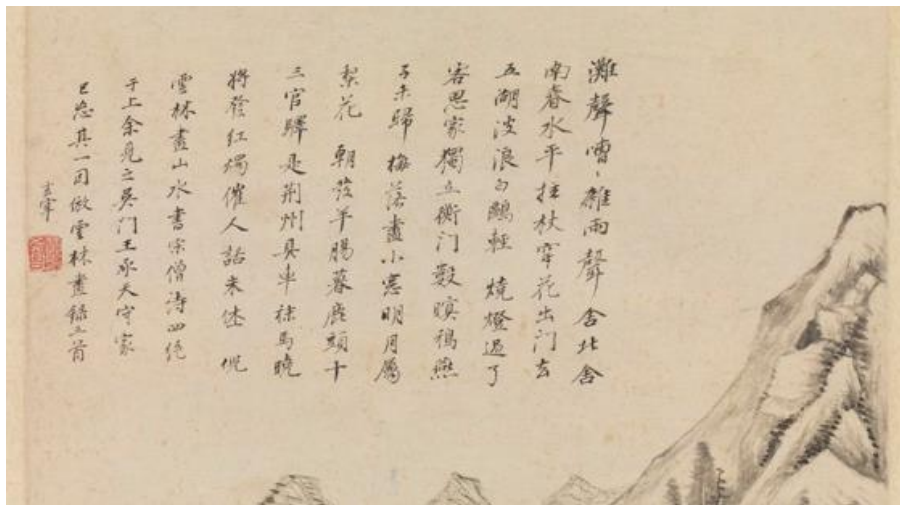 灘聲嘈〻雜雨聲舍北舍
南春水平拄杖穿花出門去
五湖波浪白鷗輕 燒燈過了
客思家獨立衡門數暝鴉燕
子未歸梅落盡小窓明月屬
梨花 朝發羊腸暮鹿頭十
三官驛是荊州具車秣馬曉
將發紅燭催人話未休 倪
雲林畫山水書宋僧詩四絕
于上余見之吳門王承天守家
已忘其一因倣雲林畫錄三首
玄宰